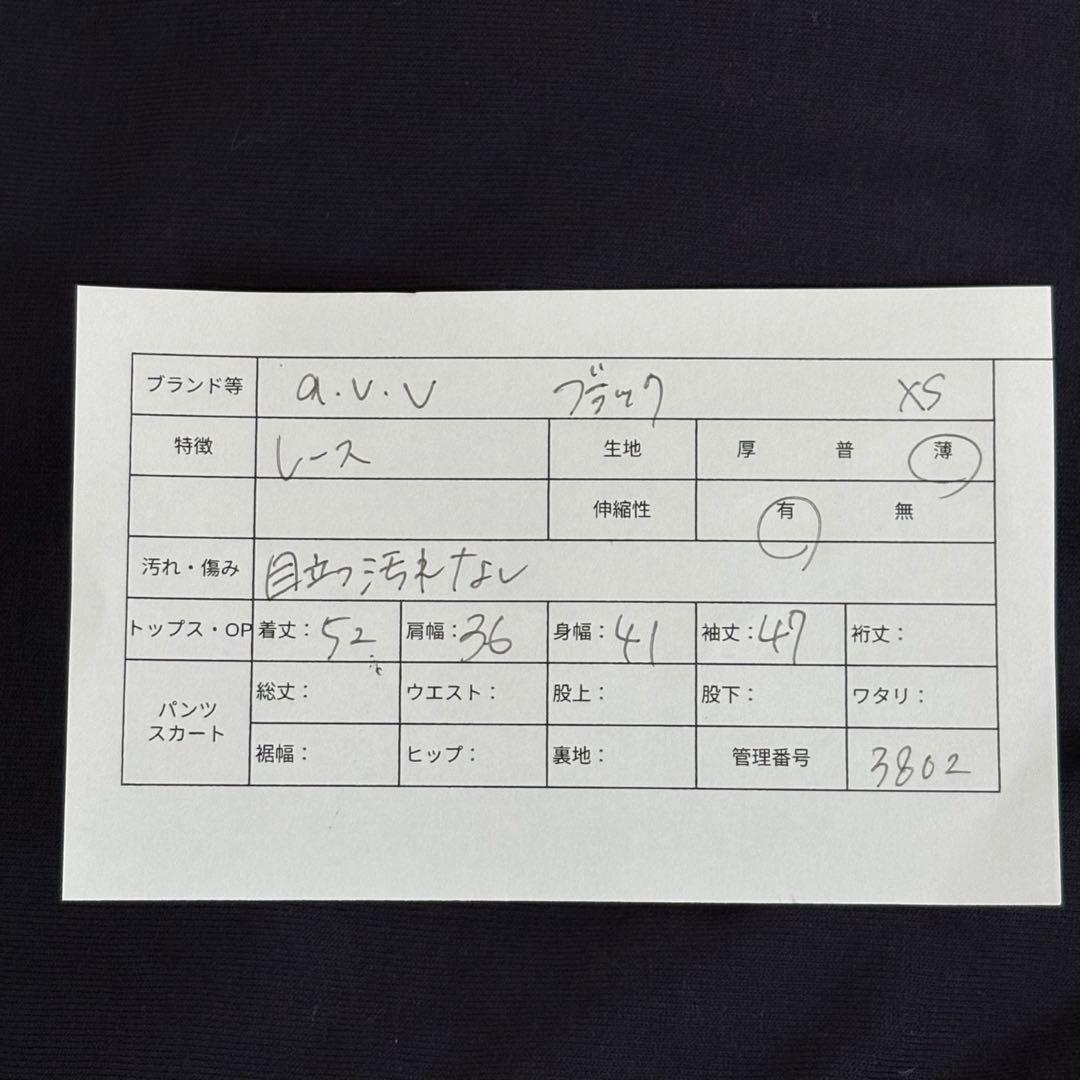 ブランド等 a.v.v ブラック XS
特徴 レース 生地 厚 普 薄
伸縮性 有 無
汚れ・傷み 目立つ汚れなし
トップス・OP 着丈：52 肩幅：36 身幅：41 袖丈：47 裄丈：
パンツ
スカート
総丈： ウエスト： 股上： 股下： ワタリ：
裾幅： ヒップ： 裏地： 管理番号 3802